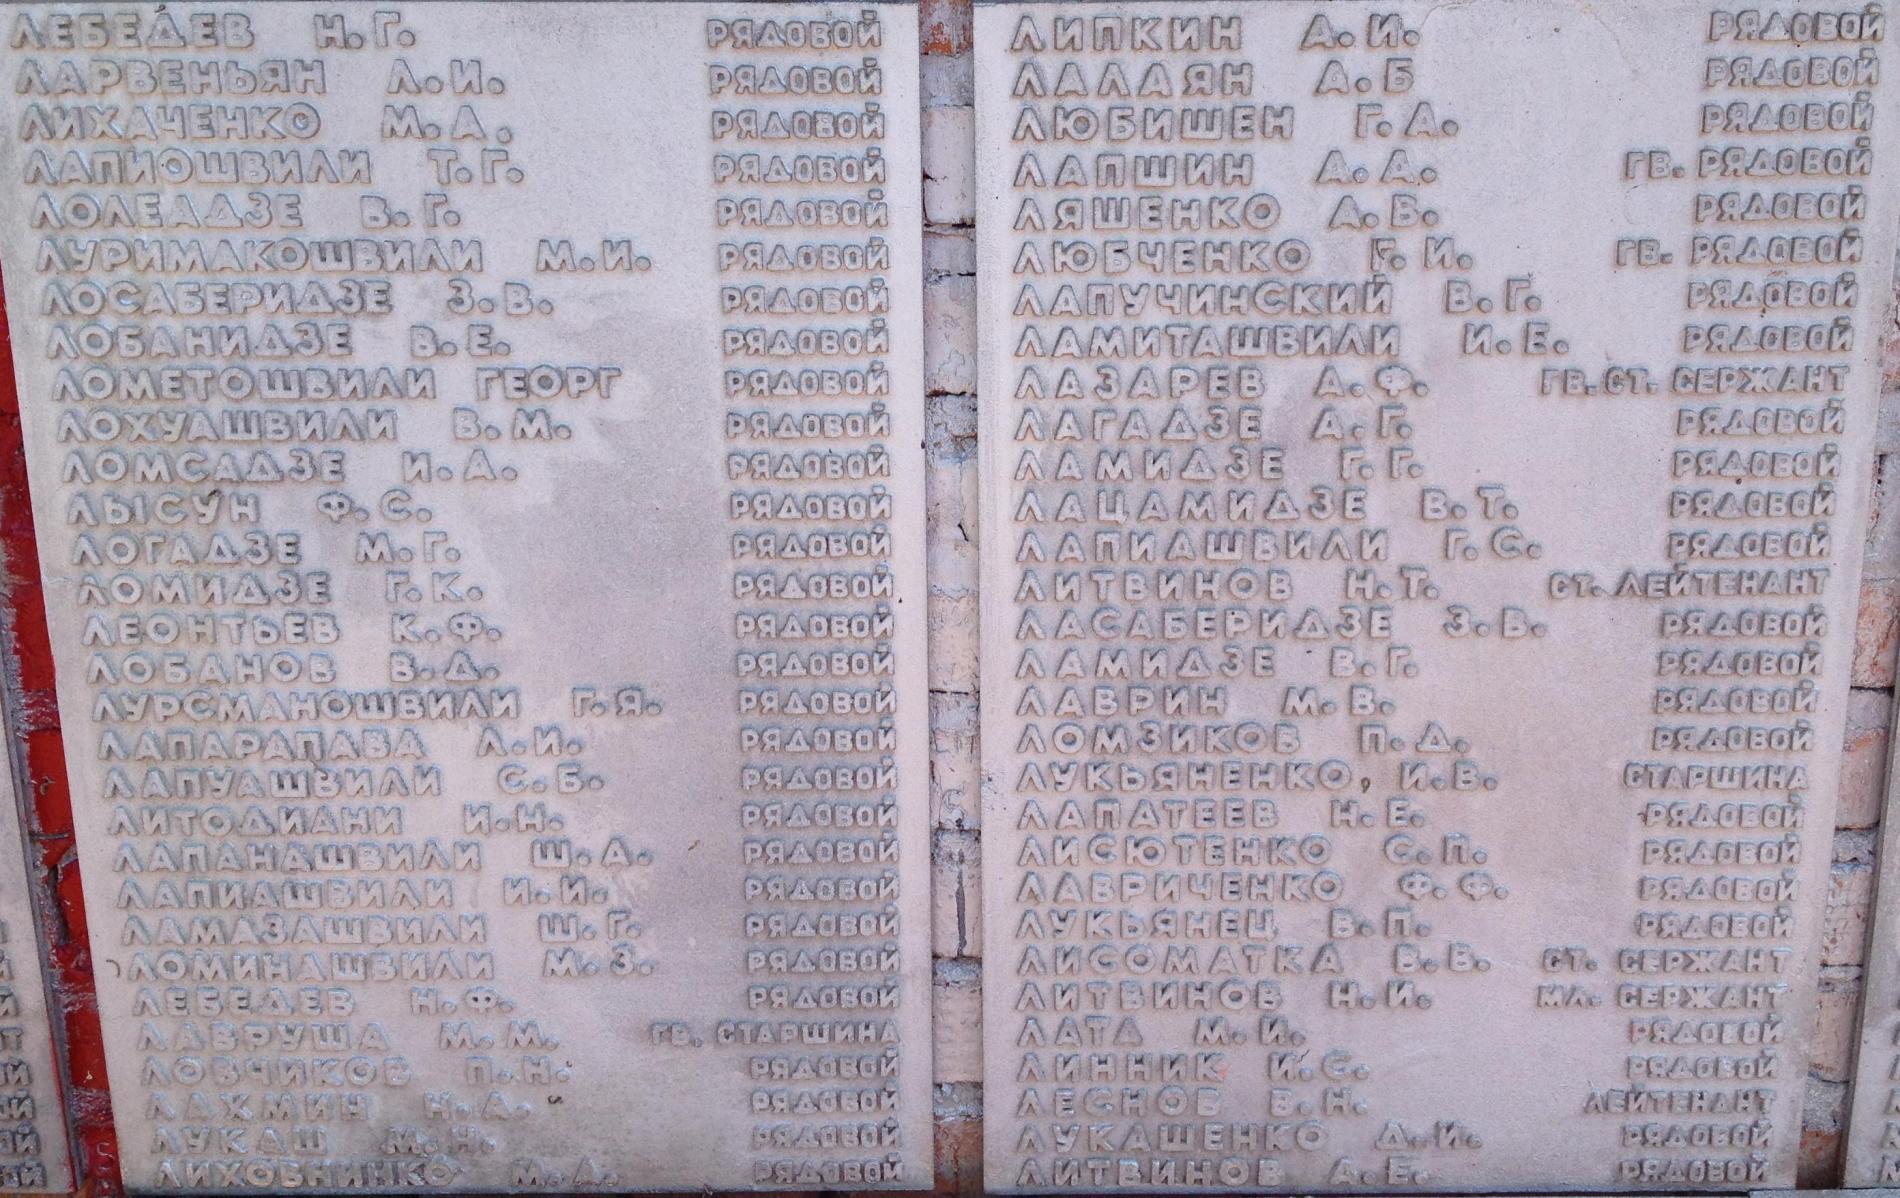 ЛЕБЕДЕВ Н.Г. РЯДОВОЙ
ЛАРВЕНЬЯН Л.И. РЯДОВОЙ
ЛИХАЧЕНКО М.А. РЯДОВОЙ
ЛАПИОШВИЛИ Т.Г. РЯДОВОЙ
ЛОЛЕАДЗЕ В.Г. РЯДОВОЙ
ЛУРИМАКОШВИЛИ М.И. РЯДОВОЙ
ЛОСАБЕРИДЗЕ З.В. РЯДОВОЙ
ЛОБАНИДЗЕ В.Е. РЯДОВОЙ
ЛОМЕТОШВИЛИ ГЕОРГ РЯДОВОЙ
ЛОХУАШВИЛИ В.М. РЯДОВОЙ
ЛОМСАДЗЕ И.А. РЯДОВОЙ
ЛЫСУН Ф.С. РЯДОВОЙ
ЛОГАДЗЕ М.Г. РЯДОВОЙ
ЛОМИДЗЕ Г.К. РЯДОВОЙ
ЛЕОНТЬЕВ К.Ф. РЯДОВОЙ
ЛОБАНОВ В.Д. РЯДОВОЙ
ЛУРСМАНОШВИЛИ Г.Я. РЯДОВОЙ
ЛАПАРАПАВА Л.И. РЯДОВОЙ
ЛАПУАШВИЛИ С.Б. РЯДОВОЙ
ЛИТОДИАНИ И.Н. РЯДОВОЙ
ЛАПАНАШВИЛИ Ш.А. РЯДОВОЙ
ЛАПИАШВИЛИ И.И. РЯДОВОЙ
ЛАМАЗАШВИЛИ Ш.Г. РЯДОВОЙ
ЛОМИНАШВИЛИ М.З. РЯДОВОЙ
ЛЕБЕДЕВ Н.Ф. РЯДОВОЙ
ЛАВРУША М.М. ГВ. СТАРШИНА
ЛОВЧИКОВ П.Н. РЯДОВОЙ
ЛАХМИН Н.А. РЯДОВОЙ
ЛУКАШ М.Н. РЯДОВОЙ
ЛИХОВНИНКО М.А. РЯДОВОЙ
ЛИПКИН А.И. РЯДОВОЙ
ЛАЛАЯН А.Б РЯДОВОЙ
ЛЮБИШЕН Г.А. РЯДОВОЙ
ЛАПШИН А.А. ГВ. РЯДОВОЙ
ЛЯШЕНКО А.В. РЯДОВОЙ
ЛЮБЧЕНКО Г.И. ГВ. РЯДОВОЙ
ЛАПУЧИНСКИЙ В.Г. РЯДОВОЙ
ЛАМИТАШВИЛИ И.Е. РЯДОВОЙ
ЛАЗАРЕВ А.Ф. ГВ.СТ. СЕРЖАНТ
ЛАГАДЗЕ А.Г. РЯДОВОЙ
ЛАМИДЗЕ Г.Г. РЯДОВОЙ
ЛАЦАМИДЗЕ В.Т. РЯДОВОЙ
ЛАПИАШВИЛИ Г.С. РЯДОВОЙ
ЛИТВИНОВ Н.Т. СТ. ЛЕЙТЕНАНТ
ЛАСАБЕРИДЗЕ З.В. РЯДОВОЙ
ЛАМИДЗЕ В.Г. РЯДОВОЙ
ЛАВРИН М.В. РЯДОВОЙ
ЛОМЗИКОВ П.Д. РЯДОВОЙ
ЛУКЬЯНЕНКО, И.В. СТАРШИНА
ЛАПАТЕЕВ Н.Е. РЯДОВОЙ
ЛИСЮТЕНКО С.П. РЯДОВОЙ
ЛАВРИЧЕНКО Ф.Ф. РЯДОВОЙ
ЛУКЬЯНЕЦ В.П. РЯДОВОЙ
ЛИСОМАТКА В.В. СТ. СЕРЖАНТ
ЛИТВИНОВ Н.И. МЛ. СЕРЖАНТ
ЛАТА М.И. РЯДОВОЙ
ЛИННИК И.С. РЯДОВОЙ
ЛЕСНОВ В.Н. ЛЕЙТЕНАНТ
ЛУКАШЕНКО Д.И. РЯДОВОЙ
ЛИТВИНОВ А.Е. РЯДОВОЙ